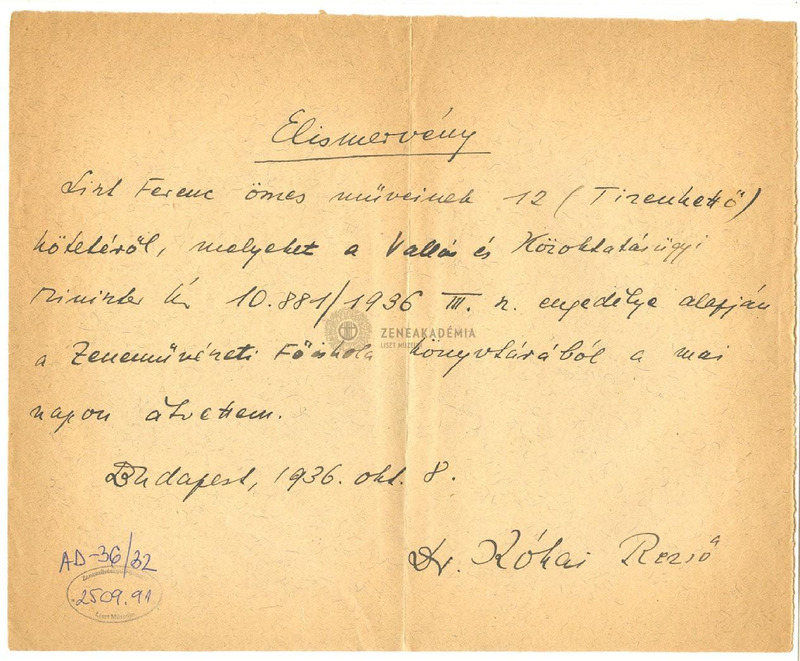 Elismervény
Liszt Ferenc összes műveinek 12 (Tizenkettő)
kötetéről, melyeket a Vallás és Közoktatásügyi
Miniszter Úr 10.881/1936 III. sz. engedélye alapján
a Zeneművészeti Főiskola könyvtárából a mai
napon átvettem.
Budapest, 1936. okt. 8.
Dr. Kókai Rezső
ZENEAKADÉMIA
LISZT MÚZEUM
AD-36/32
2509.91
Liszt Múzeum